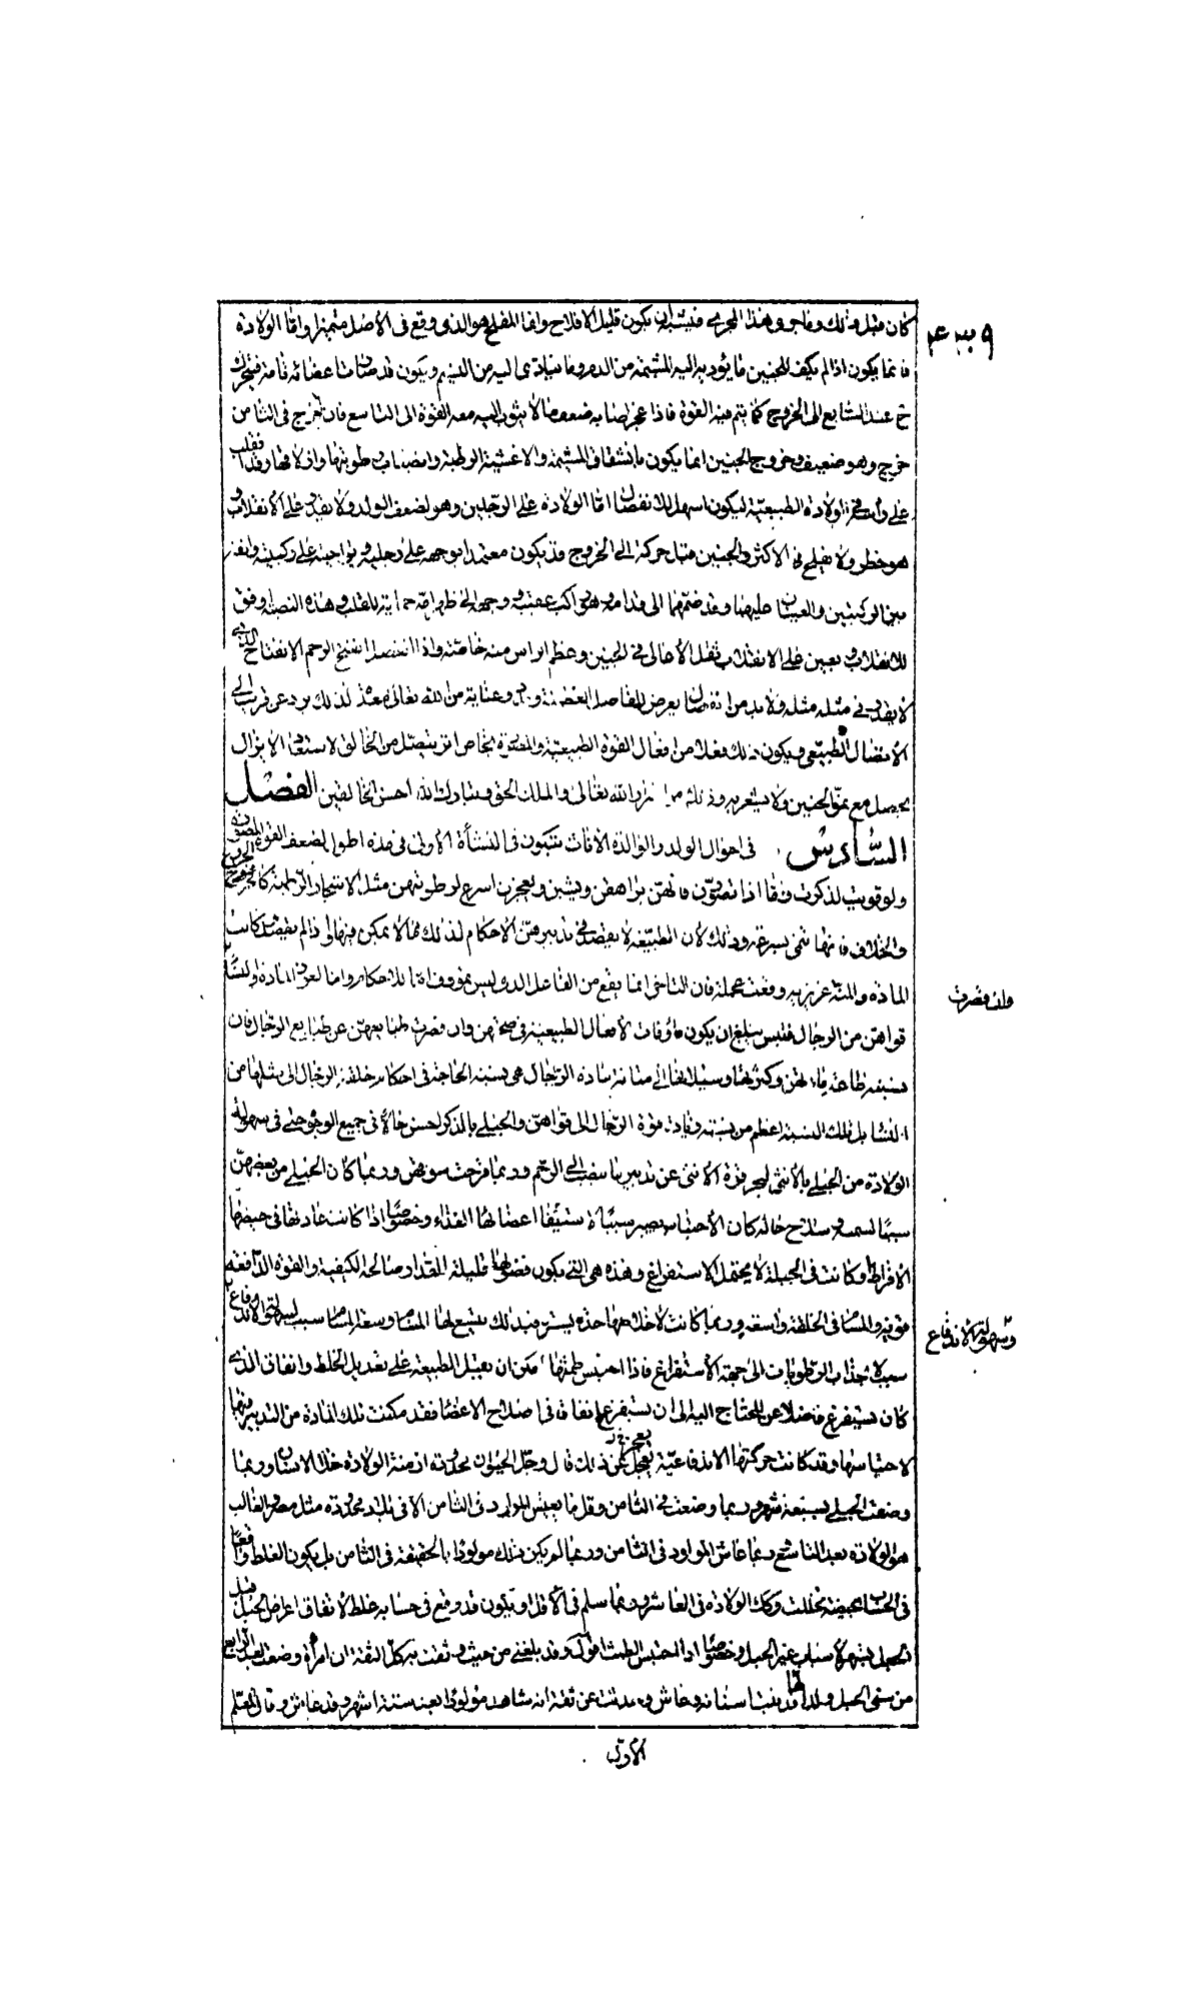 ٤٣٩
كان قبل ذلك وفاجر وهذا المجرى فيشبه ان يكون قليل الافلاح وانما المفلح هو الذى وقع فى الأصل متميزا واما الولادة
فانما يكون اذا لم يكف الجنين ما يؤديه اليه المشيمة من الدم وما يتادى اليه من النسيم ويكون قد صارت اعضائه تامة فيتحرك
ح عند السابع الى الخروج كما يتم فيه القوة فاذا عجز اصابه ضعف ما لا يثوب اليه معه القوة الى التاسع فان خرج فى الثامن
خرج وهو ضعيف وخروج الجنين انما يكون بانشقاق المشيمة والاغشية الرطبة وانصباب رطوبتها وازلاقها وقد انقلب
على رأسه فى الولادة الطبيعية ليكون اسهل للانفصال اما الولادة على الرجلين وهو لضعف الولد ولا يقدر على الانقلاب و
هو خطر ولا يفلح فى الاكثر والجنين قبل حركته الى الخروج قد يكون معتمدا بوجهه على رجليه وبراحتيه على ركبتيه وانفه
بين الركبتين والعينان عليهما وقد ضمهما الى قدامه وهو راكب عقبيه ووجهه الى ظهر امه حماية للقلب وهذه النصبة اوفق
للانقلاب ويعين على الانقلاب ثقل الأعالى فى الجنين وعظم الراس منه خاصة واذا انفصل انفتح الرحم الانفتاح الذى
لا يقدر فى مثله مثله ولا بد من انفصال يعرض للمفاصل العظمية وعناية من الله تعالى معدة لذلك يرد عن قريب الى
الاتصال الطبيعى ويكون ذلك فعلا من افعال القوة الطبيعية والمصورة بخاص اثر يتصل من الخالق لاستعداد لا يزال
يحصل مع نمو الجنين ولا يشعر به وذلك من اسرار الله تعالى الله الملك الحق وتبارك الله احسن الخالقين الفصل
السادس فى احوال الولد والوالدة الاناث يتكون فى النشأة الأولى فى مدة اطول لضعف القوة المصورة
ولو قويت لذكرت واما اذا تصورن فانهن يراهقن ويشبن ويعجزن اسرع لرطوبتهن مثل الاشجار الرطبة كالخروع
والخلاف فانها تنمى بسرعة وذلك لأن الطبيعة لا يقصد فى تدبيرهن الأحكام لذلك مما لا يمكن فيها
المادة
قواهن من الرجال فليس يبلغ ان يكون مأوفات لافعال الطبيعية فى صحتهن وان قصرت طبايعهن عن طبايع الرجال فان
نسبة طاعة مادتهن وكثرتها وسيلانها الى متانة مادة الرجال هى نسبة الحاجة فى احكام خلقة الرجال الى مثلها من
النساء بل تلك النسبة اعظم من نسبة زيادة قوة الرجال الى قواهن والحبلى بالذكر احسن حالا فى جميع الوجوه حتى فى سهولة
الولادة من الحبلى بالأنثى لعجز قوة الأنثى عن تدبير ما ينصب الى الرحم وربما مرضت بمرض وربما كان الحبل من بعضهن
سببا لسمن وصلاح حال كان الأحتباس يصير سببا لاستيفاء اعضائها الغذاء وخصوصا اذا كانت عادتها فى حيضها
الافراط وكانت فى الجبلة لا يحتمل الاستفراغ وهذه هى التى يكون فضولها قليلة المقدار صالحة الكيفية والقوة الدافعة
قوية والمسام فى الخلقة واسعة وربما كانت لأخلاطها حدة يسيرة فبذلك يتسع لها المسام وسعة المسام سبب لسهولة الاندفاع
سببا لانجذاب الرطوبات الى جهة الأستفراغ فاذا احتبس طمثها امكن ان يقبل الطبيعة على تعديل الخلط وانفاق الذى
كان يستفرغ فضلا عن المحتاج اليه الى ان يستفرغ انفاقا فى اصلاح الاعضاء فقد مكنت تلك المادة من التدبير فيها
لاحتباسها وقد كانت حركتها الاندفاعية يعجل عن ذلك قال وجل الحيوان محدودة ازمنة الولادة خلا الانسان وربما
وضعت الحبلى لسبعة اشهر وربما وضعت فى الثامن وقل ما يعيش المولود فى الثامن الا فى بلاد محدودة مثل مصر والغالب
هو الولادة بعد التاسع وربما عاش المولود فى الثامن وربما لم يكن ذلك مولودا بالحقيقة فى الثامن بل يكون الغلط واقعا
فى الحساب بحيضة تخللت وكك الولادة فى العاشر وربما سلم فى الأقل او يكون قد وقع فى حسابه غلط لاتفاق اعراض الحبل قبل
الحبل يشبهه لأسباب غير الحبل وخصوصا اذا احتبس الطمث اقول وقد بلغنى من حيث وثقت به كل الثقة ان امرأة وضعت بعد الرابع
من سنى الحبل ولدا قد نبتت اسنانه وعاش وحدثت عن ثقة انه شاهد مولودا بعد ستة اشهر وقد عاش وقال المعلم
وان قصرت
وسهولة الاندفاع
الأول